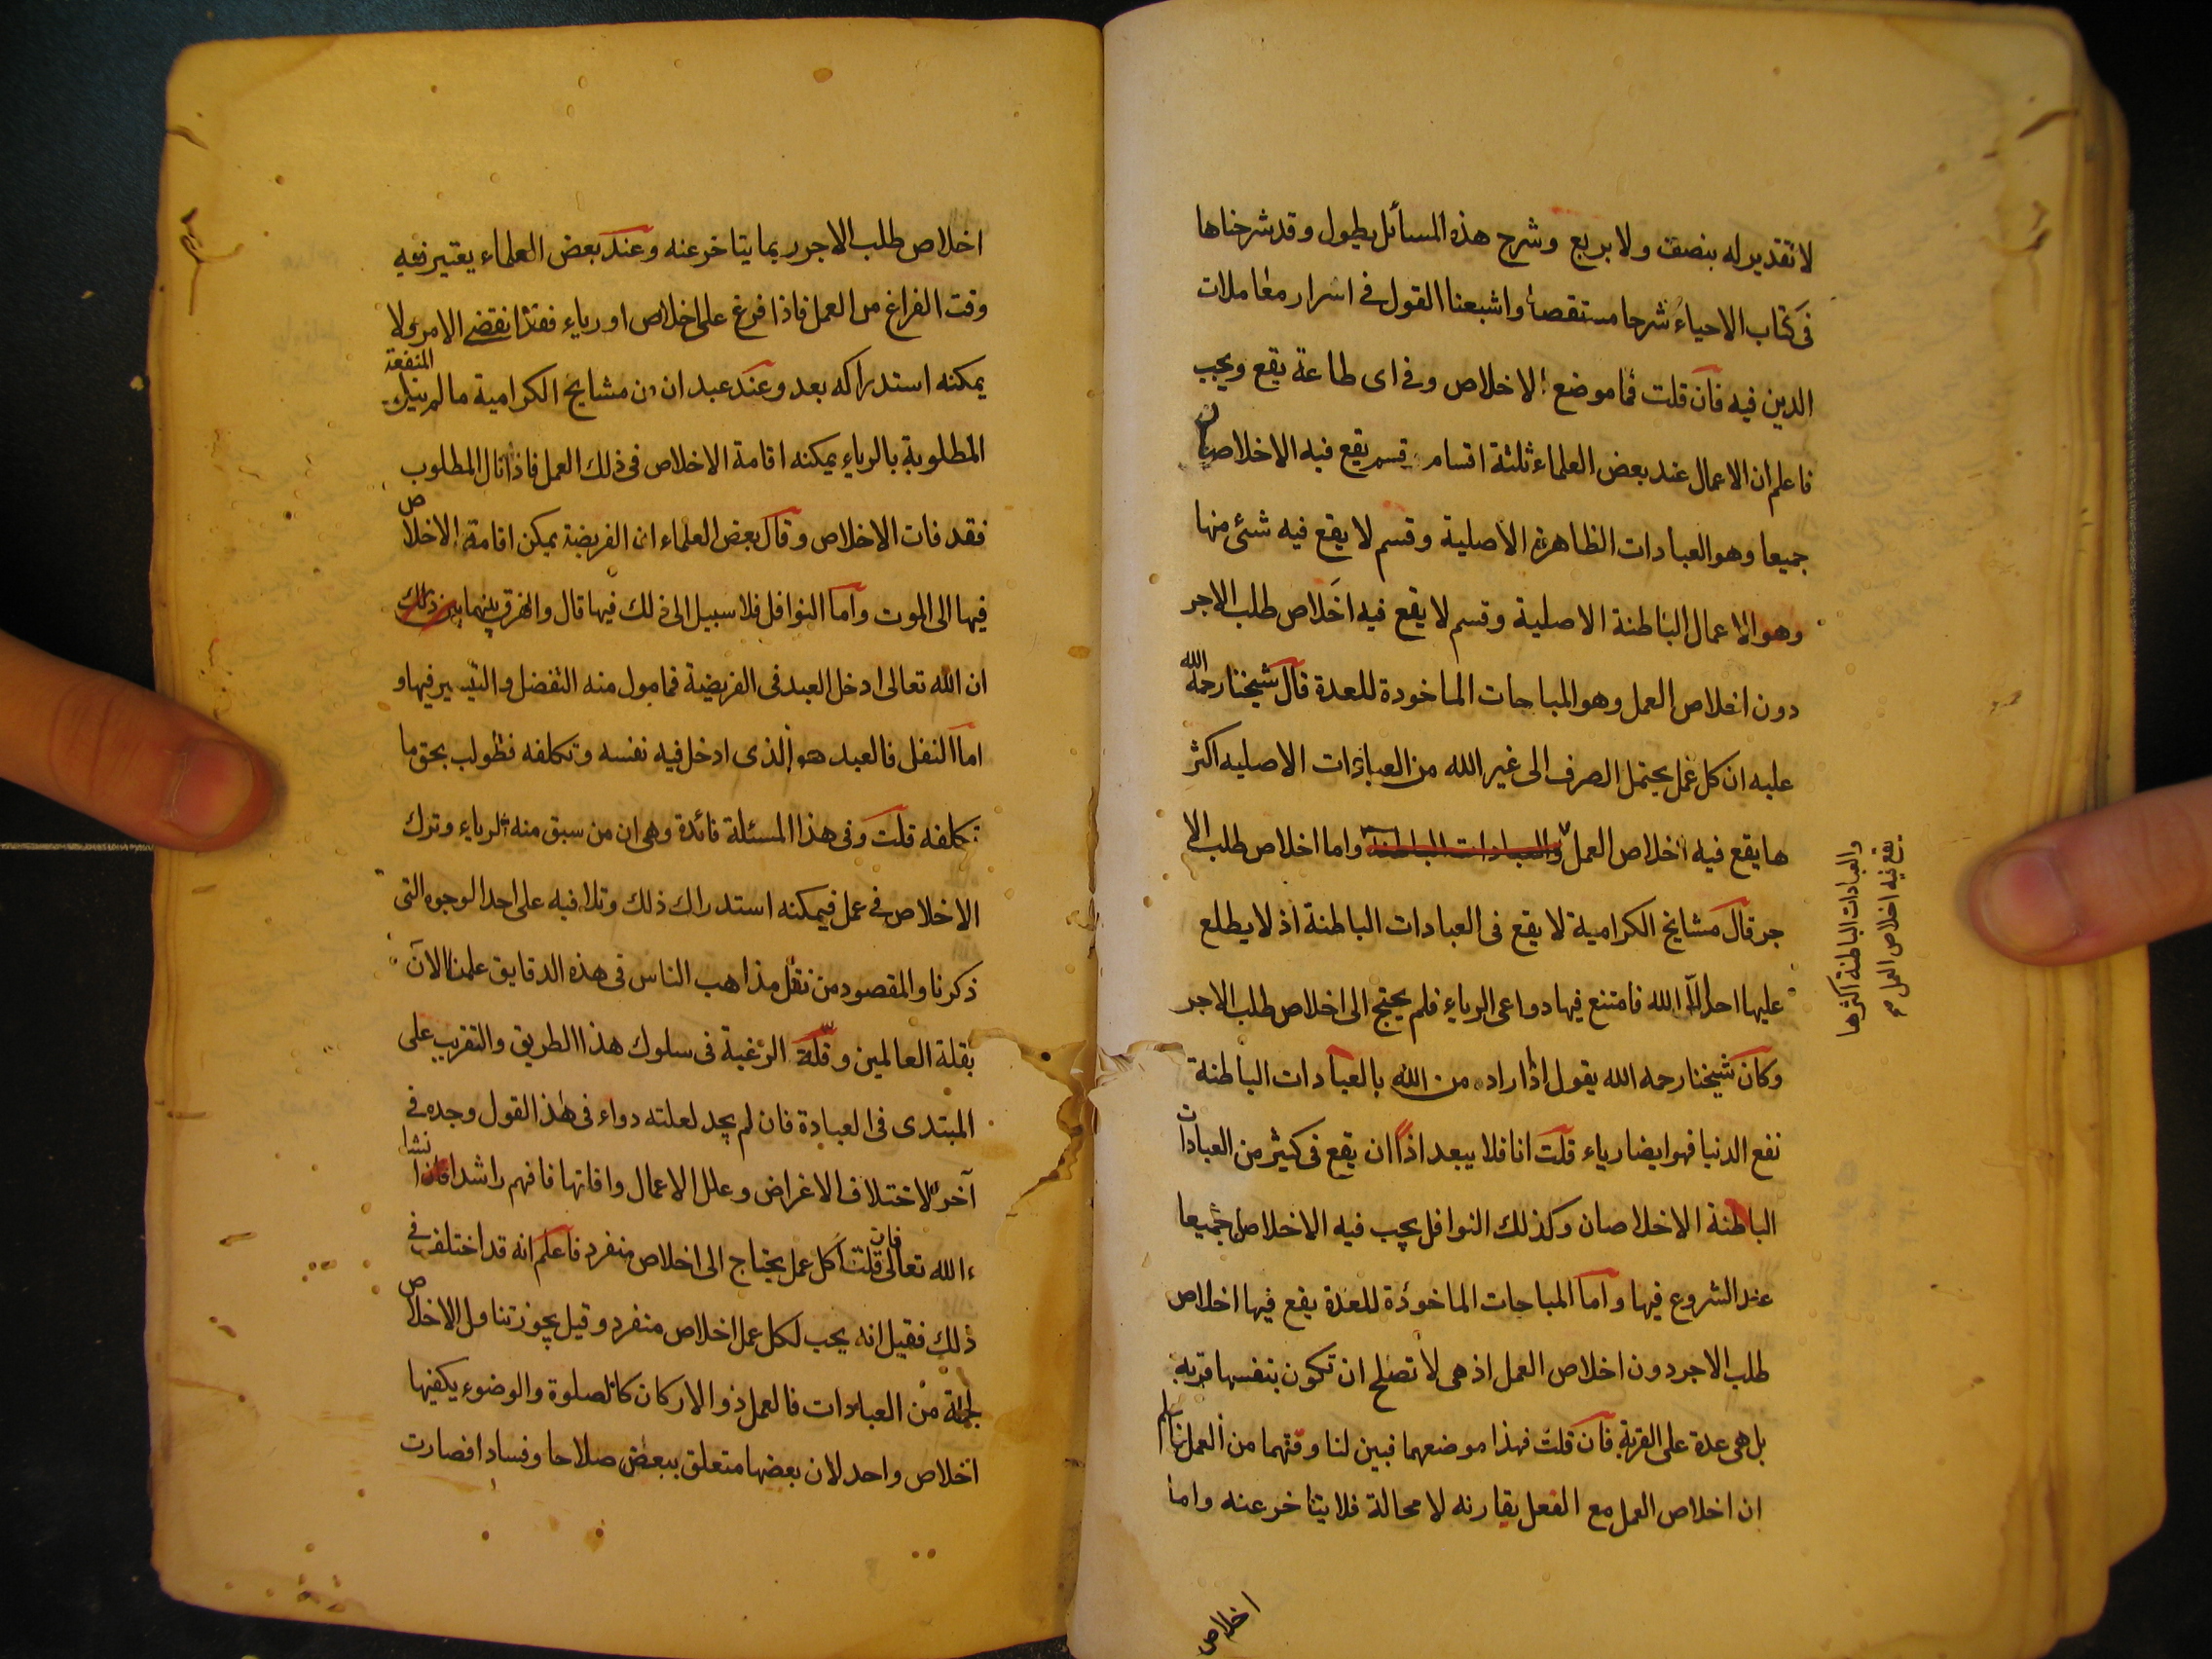 لا تقدير له بنصف ولا بربع وشرح هذه المسائل يطول وقد شرحناها
فى كتاب الاحياء شرحا مستقصا واشبعنا القول فى اسرار معاملات
الدين فيه فان قلت فما موضع الاخلاص وفى اى طاعة يقع ويجب
فاعلم ان الاعمال عند بعض العلماء ثلثة اقسام قسم يقع فيه الاخلاصان
جميعا وهو العبادات الظاهرة الاصلية وقسم لا يقع فيه شئ منها
وهو الاعمال الباطنة الاصلية وقسم لا يقع فيه اخلاص طلب الاجر
دون اخلاص العمل وهو المباحات الماخوذة للعدة قال شيخنا رحمه الله
عليه ان كل عمل يحتمل الصرف الى غير الله من العبادات الاصليه اكثر
ها يقع فيه اخلاص العمل والعبادات الباطنة واما اخلاص طلب الا
والعبادات الباطنة اكثرها
يقع فيه اخلاص العمل
جر قال مشايخ الكرامية لا يقع فى العبادات الباطنة اذ لا يطلع
عليها احد الا الله فامتنع فيها دواعى الرياء فلم يحتج الى اخلاص طلب الاجر
وكان شيخنا رحمه الله يقول اذا اراد من الله بالعبادات الباطنة
نفع الدنيا فهو ايضا رياء قلت انا فلا يبعد اذا ان يقع فى كثير من العبادات
الباطنة الاخلاصان وكذلك النوافل يجب فيه الاخلاص جميعا
عند الشروع فيها واما المباحات الماخوذة للعدة يقع فيها اخلاص
طلب الاجر دون اخلاص العمل اذ هى لا تصلح ان تكون بنفسها قربة
بل هى عدة على القربة فان قلت فهذا موضعهما فبين لنا وقتهما من العمل
ان اخلاص العمل مع الفعل يقارنه لا محالة فلا يتاخر عنه واما
اخلاص
اخلاص طلب الاجر ربما يتاخر عنه وعند بعض العلماء يعتبر فيه
وقت الفراغ من العمل فاذا فرغ على اخلاص او رياء فقد انقضى الامر ولا
يمكنه استدراكه بعد وعند عبد ان من مشايخ الكرامية ما لم ينل المنفعة
المطلوبة بالرياء يمكنه اقامة الاخلاص فى ذلك العمل فاذا نال المطلوب
فقد فات الاخلاص وقال بعض العلماء ان الفريضة يمكن اقامة الاخلاص
فيها الى الموت واما النوافل فلا سبيل الى ذلك فيها قال والفرق بينهما
ان الله تعالى ادخل العبد فى الفريضة فمامول منه التفضل والتيسير فيها و
اما النفل فالعبد هو الذى ادخل فيه نفسه وتكلفه فطولب بحق ما
تكلفه قلت وفى هذا المسئلة فائدة وهى ان من سبق منه الرياء وترك
الاخلاص فى عمل فيمكنه استدراك ذلك وتلافيه على احد الوجوه التى
ذكرنا والمقصود من نقل مذاهب الناس فى هذه الدقايق علمنا الان
بقلة العالمين وقلة الرغبة فى سلوك هذا الطريق والتقريب على
المبتدى فى العبادة فان لم يجد لعلته دواء فى هذا القول وجده فى
آخر لاختلاف الاغراض وعلل الاعمال وافاتها فافهم راشدا ان شا
ء الله تعالى فان قلت اكل عمل يحتاج الى اخلاص منفرد فاعلم انه قد اختلف فى
ذلك فقيل انه يجب لكل عمل اخلاص منفرد وقيل يجوز تناول الاخلاص
لجملة من العبادات فالعمل ذو الاركان كالصلوة والوضوء يكفيها
اخلاص واحد لان بعضها متعلق ببعض صلاحا وفسادا فصارت